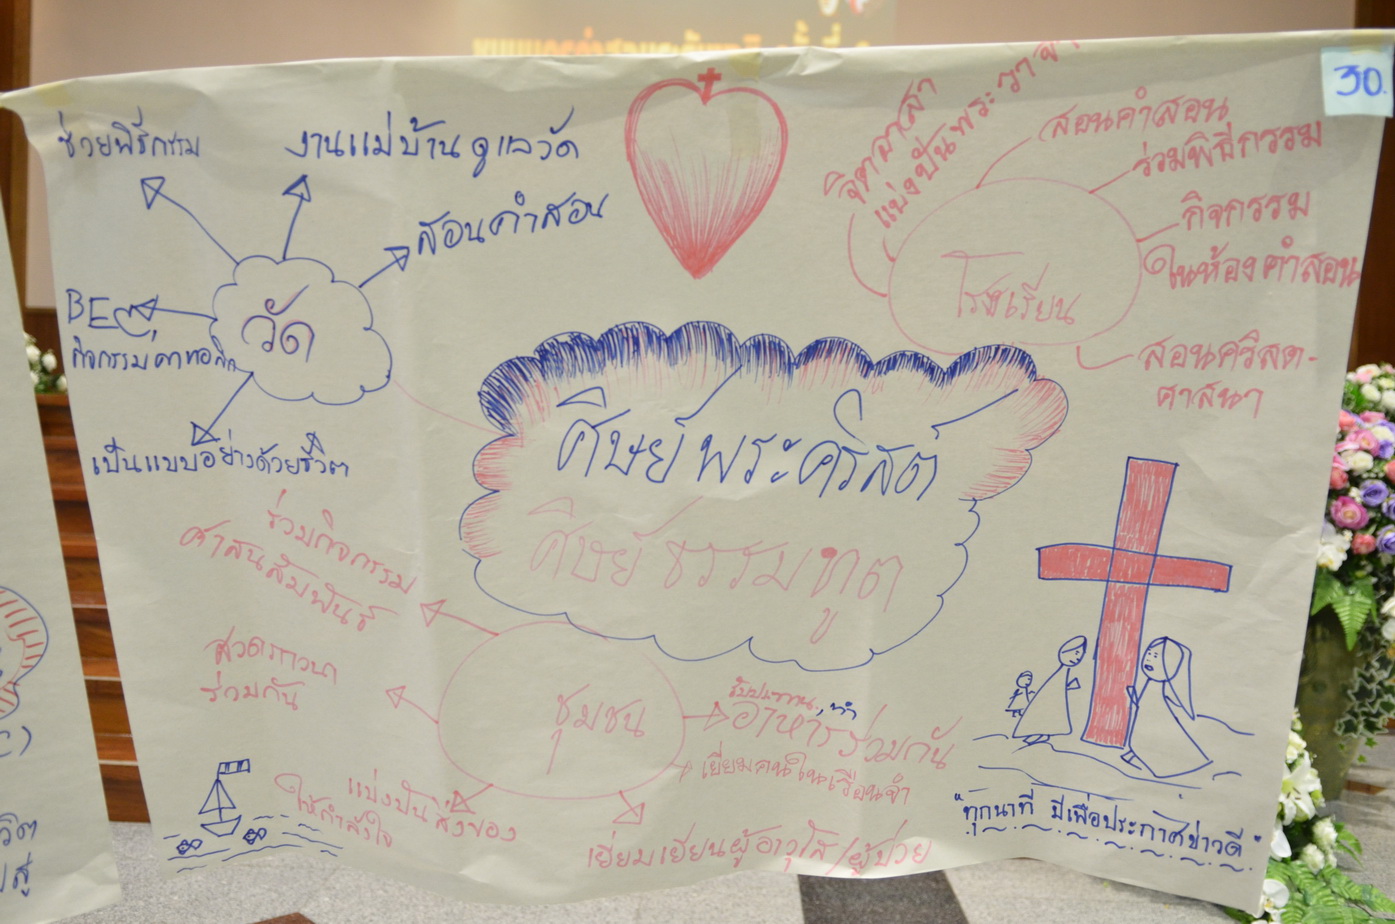 30.
ช่วยพิธีกรรม
งานแม่บ้าน ดูแลวัด
สอนคำสอน
วัด
BEC,
กิจกรรมคาทอลิก
เป็นแบบอย่างด้วยชีวิต
จิตอาสา
แบ่งปันพระวาจา
สอนคำสอน
ร่วมพิธีกรรม
กิจกรรม
ในห้องคำสอน
โรงเรียน
สอนคริสต-
ศาสนา
ศิษย์พระคริสต์
ศิษย์ธรรมทูต
ร่วมกิจกรรม
ศาสนสัมพันธ์
สวดภาวนา
ร่วมกัน
ชุมชน
รับประทาน
อาหารร่วมกัน
เยี่ยมคนในเรือนจำ
แบ่งปันสิ่งของ
ให้กำลังใจ
เยี่ยมเยียนผู้อาวุโส/ผู้ป่วย
"ทุกนาที มีเพื่อประกาศข่าวดี"